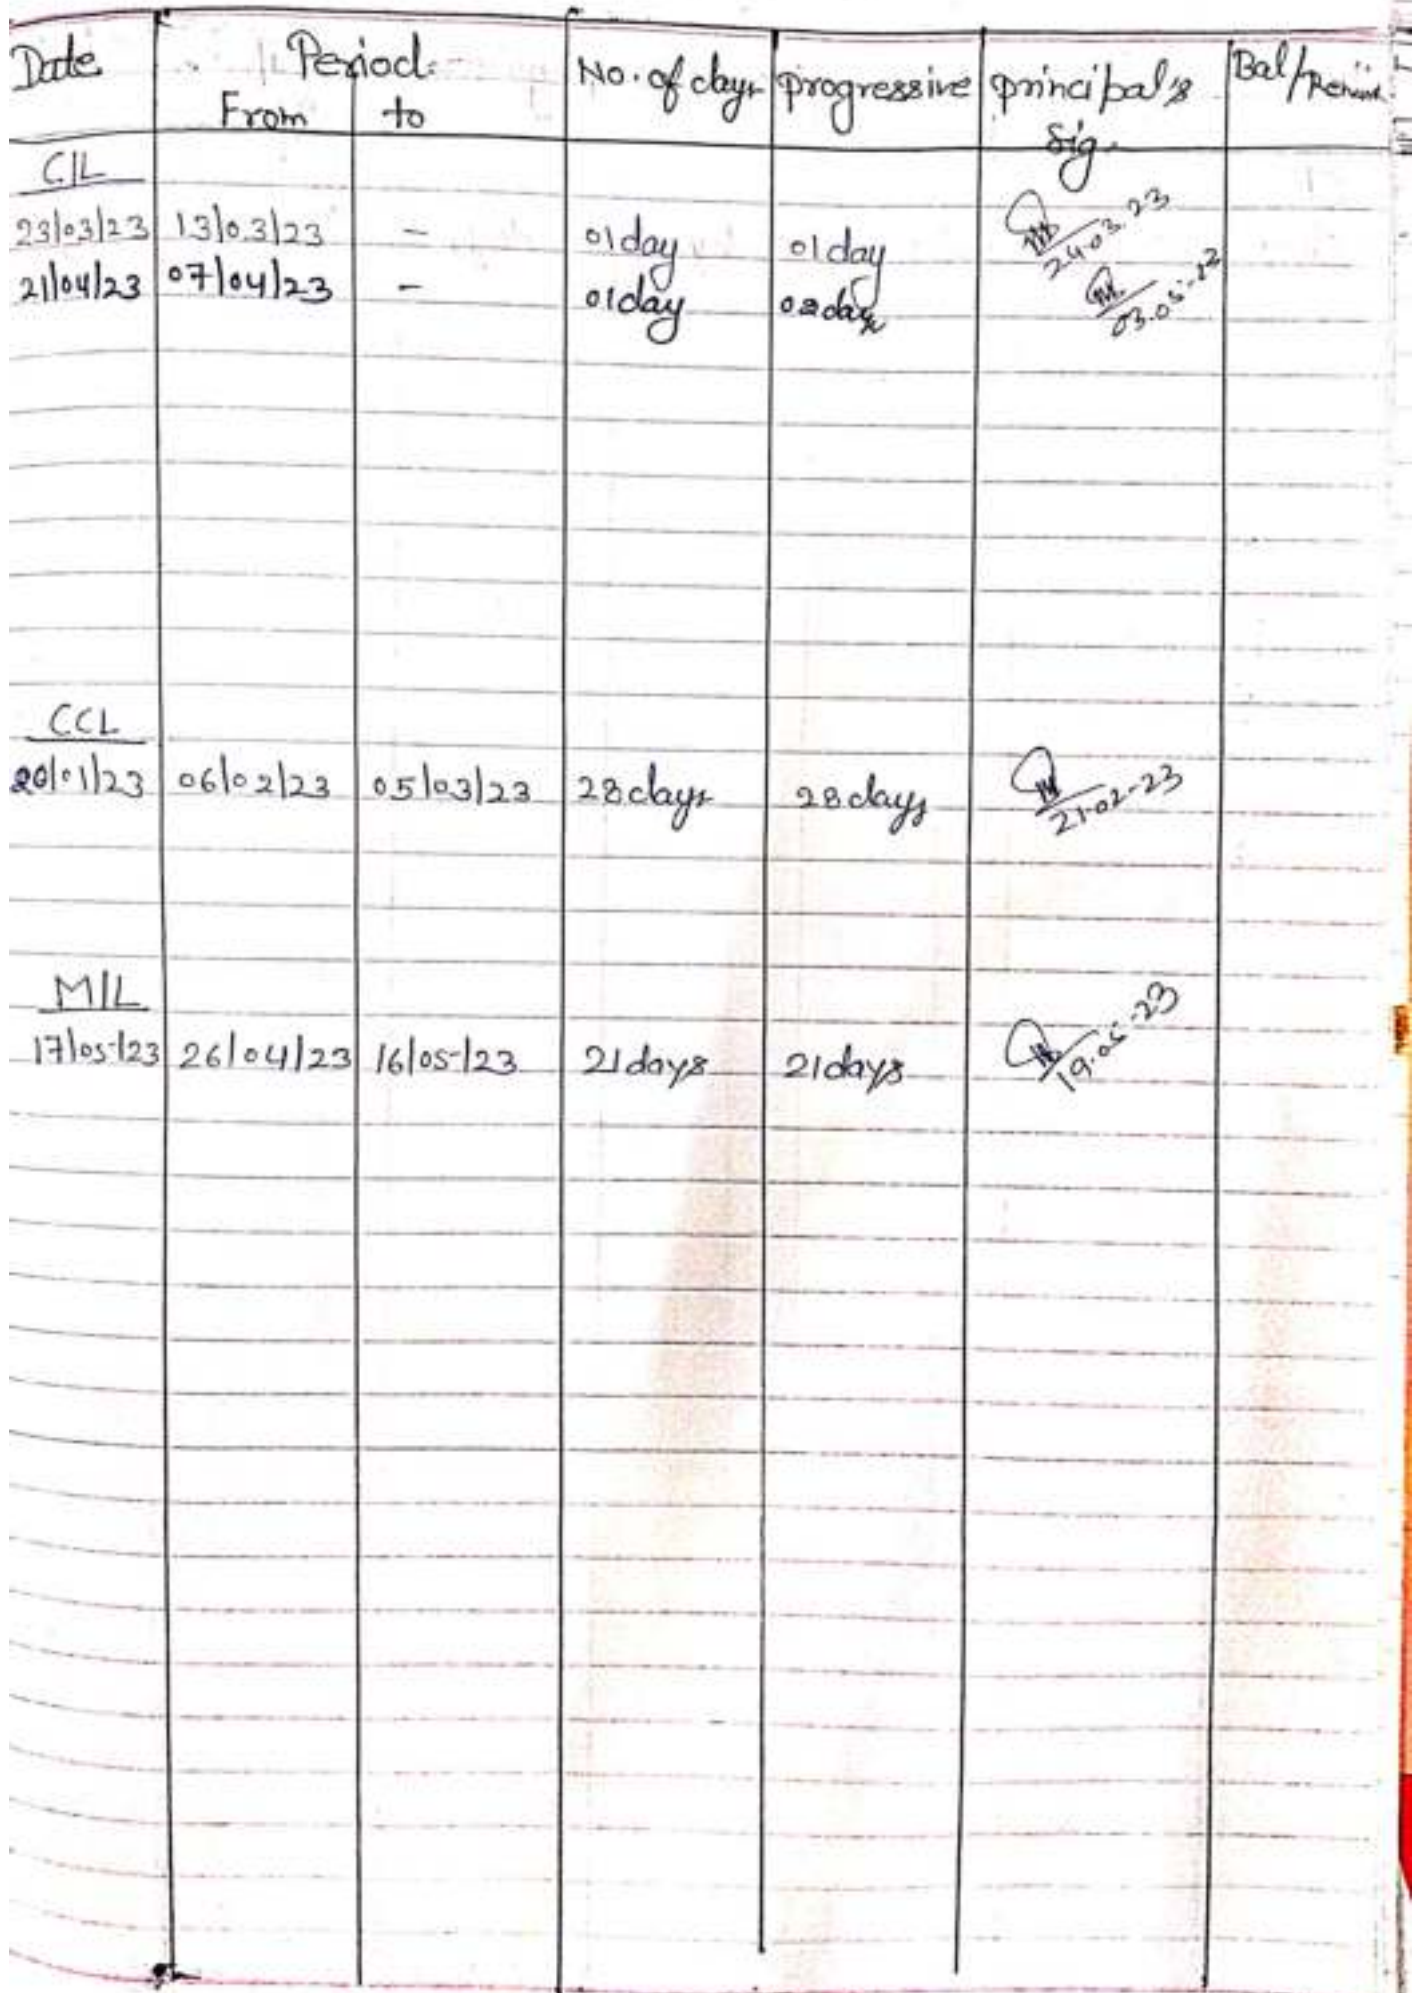 Date Period No. of days progressive principal's Bal/
From to sig.
C/L
23/03/23 13/03/23 - 01 day 01 day 24.03.23
21/04/23 07/04/23 - 01 day 02 days 03.05.
CCL
20/01/23 06/02/23 05/03/23 28 days 28 days 21-02-23
M/L
17/05/23 26/04/23 16/05/23 21 days 21 days 19.05-23